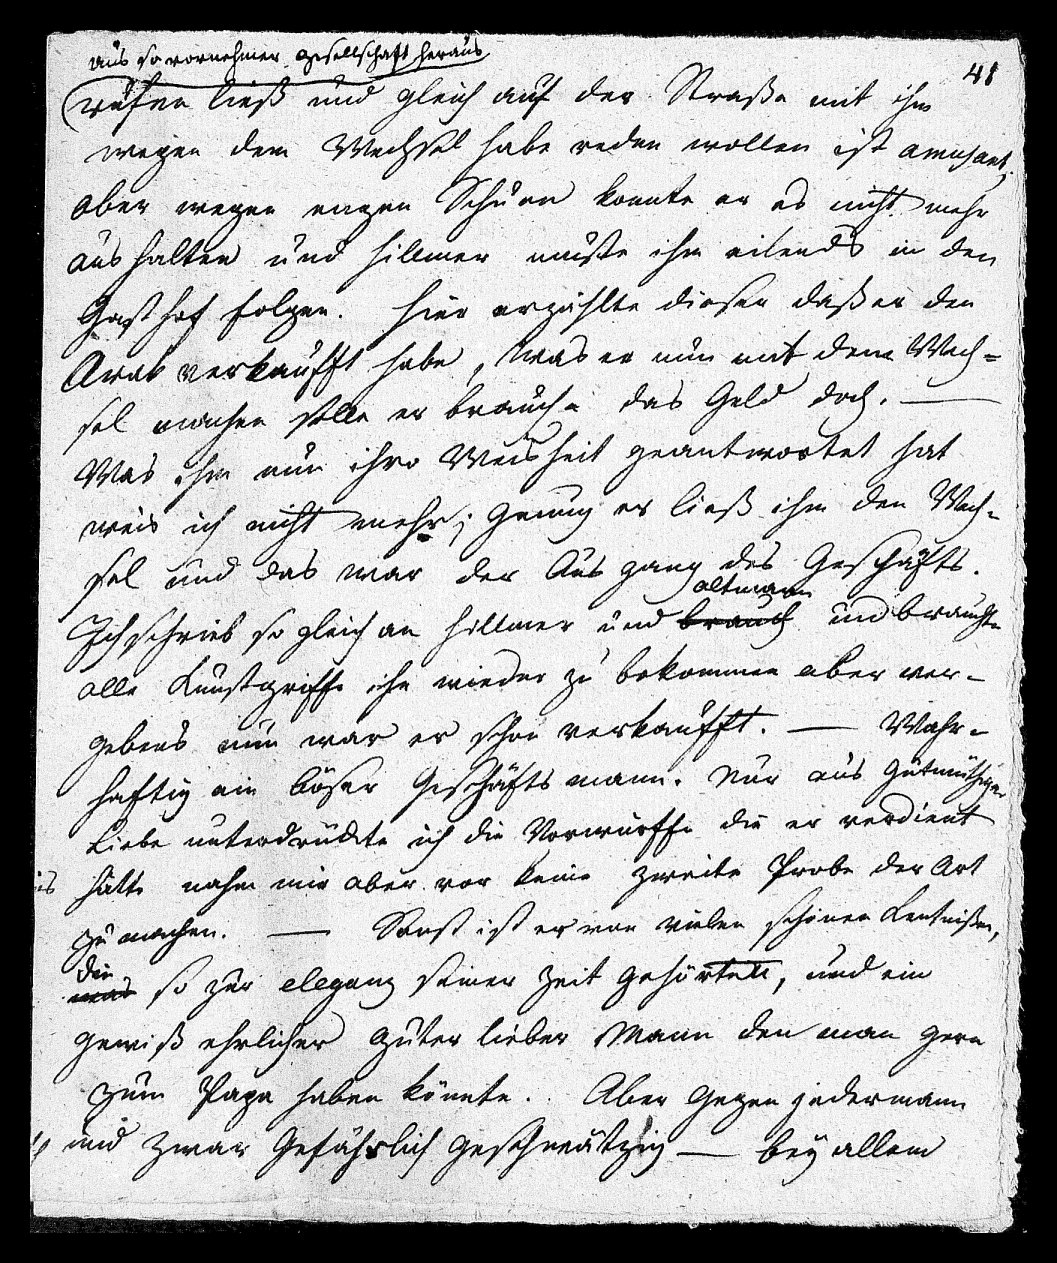 aus so vornehmer Gesellschaft heraus
41
rufen ließ und gleich auf der Straße mit ihm
wegen dem Wechsel habe reden wollen ist amusant,
aber wegen engen Schuen konnte er es nicht mehr
aushalten und Hillmer muste ihm eilends in den
Gasthof folgen. Hier erzählte dieser daß er den
Arak verkaufft habe, was er nun mit dem Wech=
sel machen solle er brauche das Geld doch. —
Was ihm nun ihro Weisheit geantwortet hat
weis ich nicht mehr; genug er ließ ihm den Wech=
sel und das war der Ausgang des Geschäfts.
altmann
Ich schrieb so gleich an Hillmer und brauch und brauchte
alle Kunstgriffe ihn wieder zu bekommen aber ver=
gebens nun war er schon verkaufft. — Wahr=
haftig ein böser Geschäftsmann. Nur aus Gutmüthiger
Liebe unterdrückte ich die Vorwürffe die er verdient
hätte nahm mir aber vor keine zweite Probe der Art
zu machen. — Sonst ist er von vielen schönen Kentnißen,
die
was so zur eleganz seiner Zeit gehörten, und ein
gewiß ehrlicher guter lieber Mann den man gern
zum Papa haben könnte. Aber gegen jedermann
und zwar Gefährlich geschwätzig — bey allem